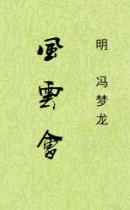 明 冯梦龙
風雲會